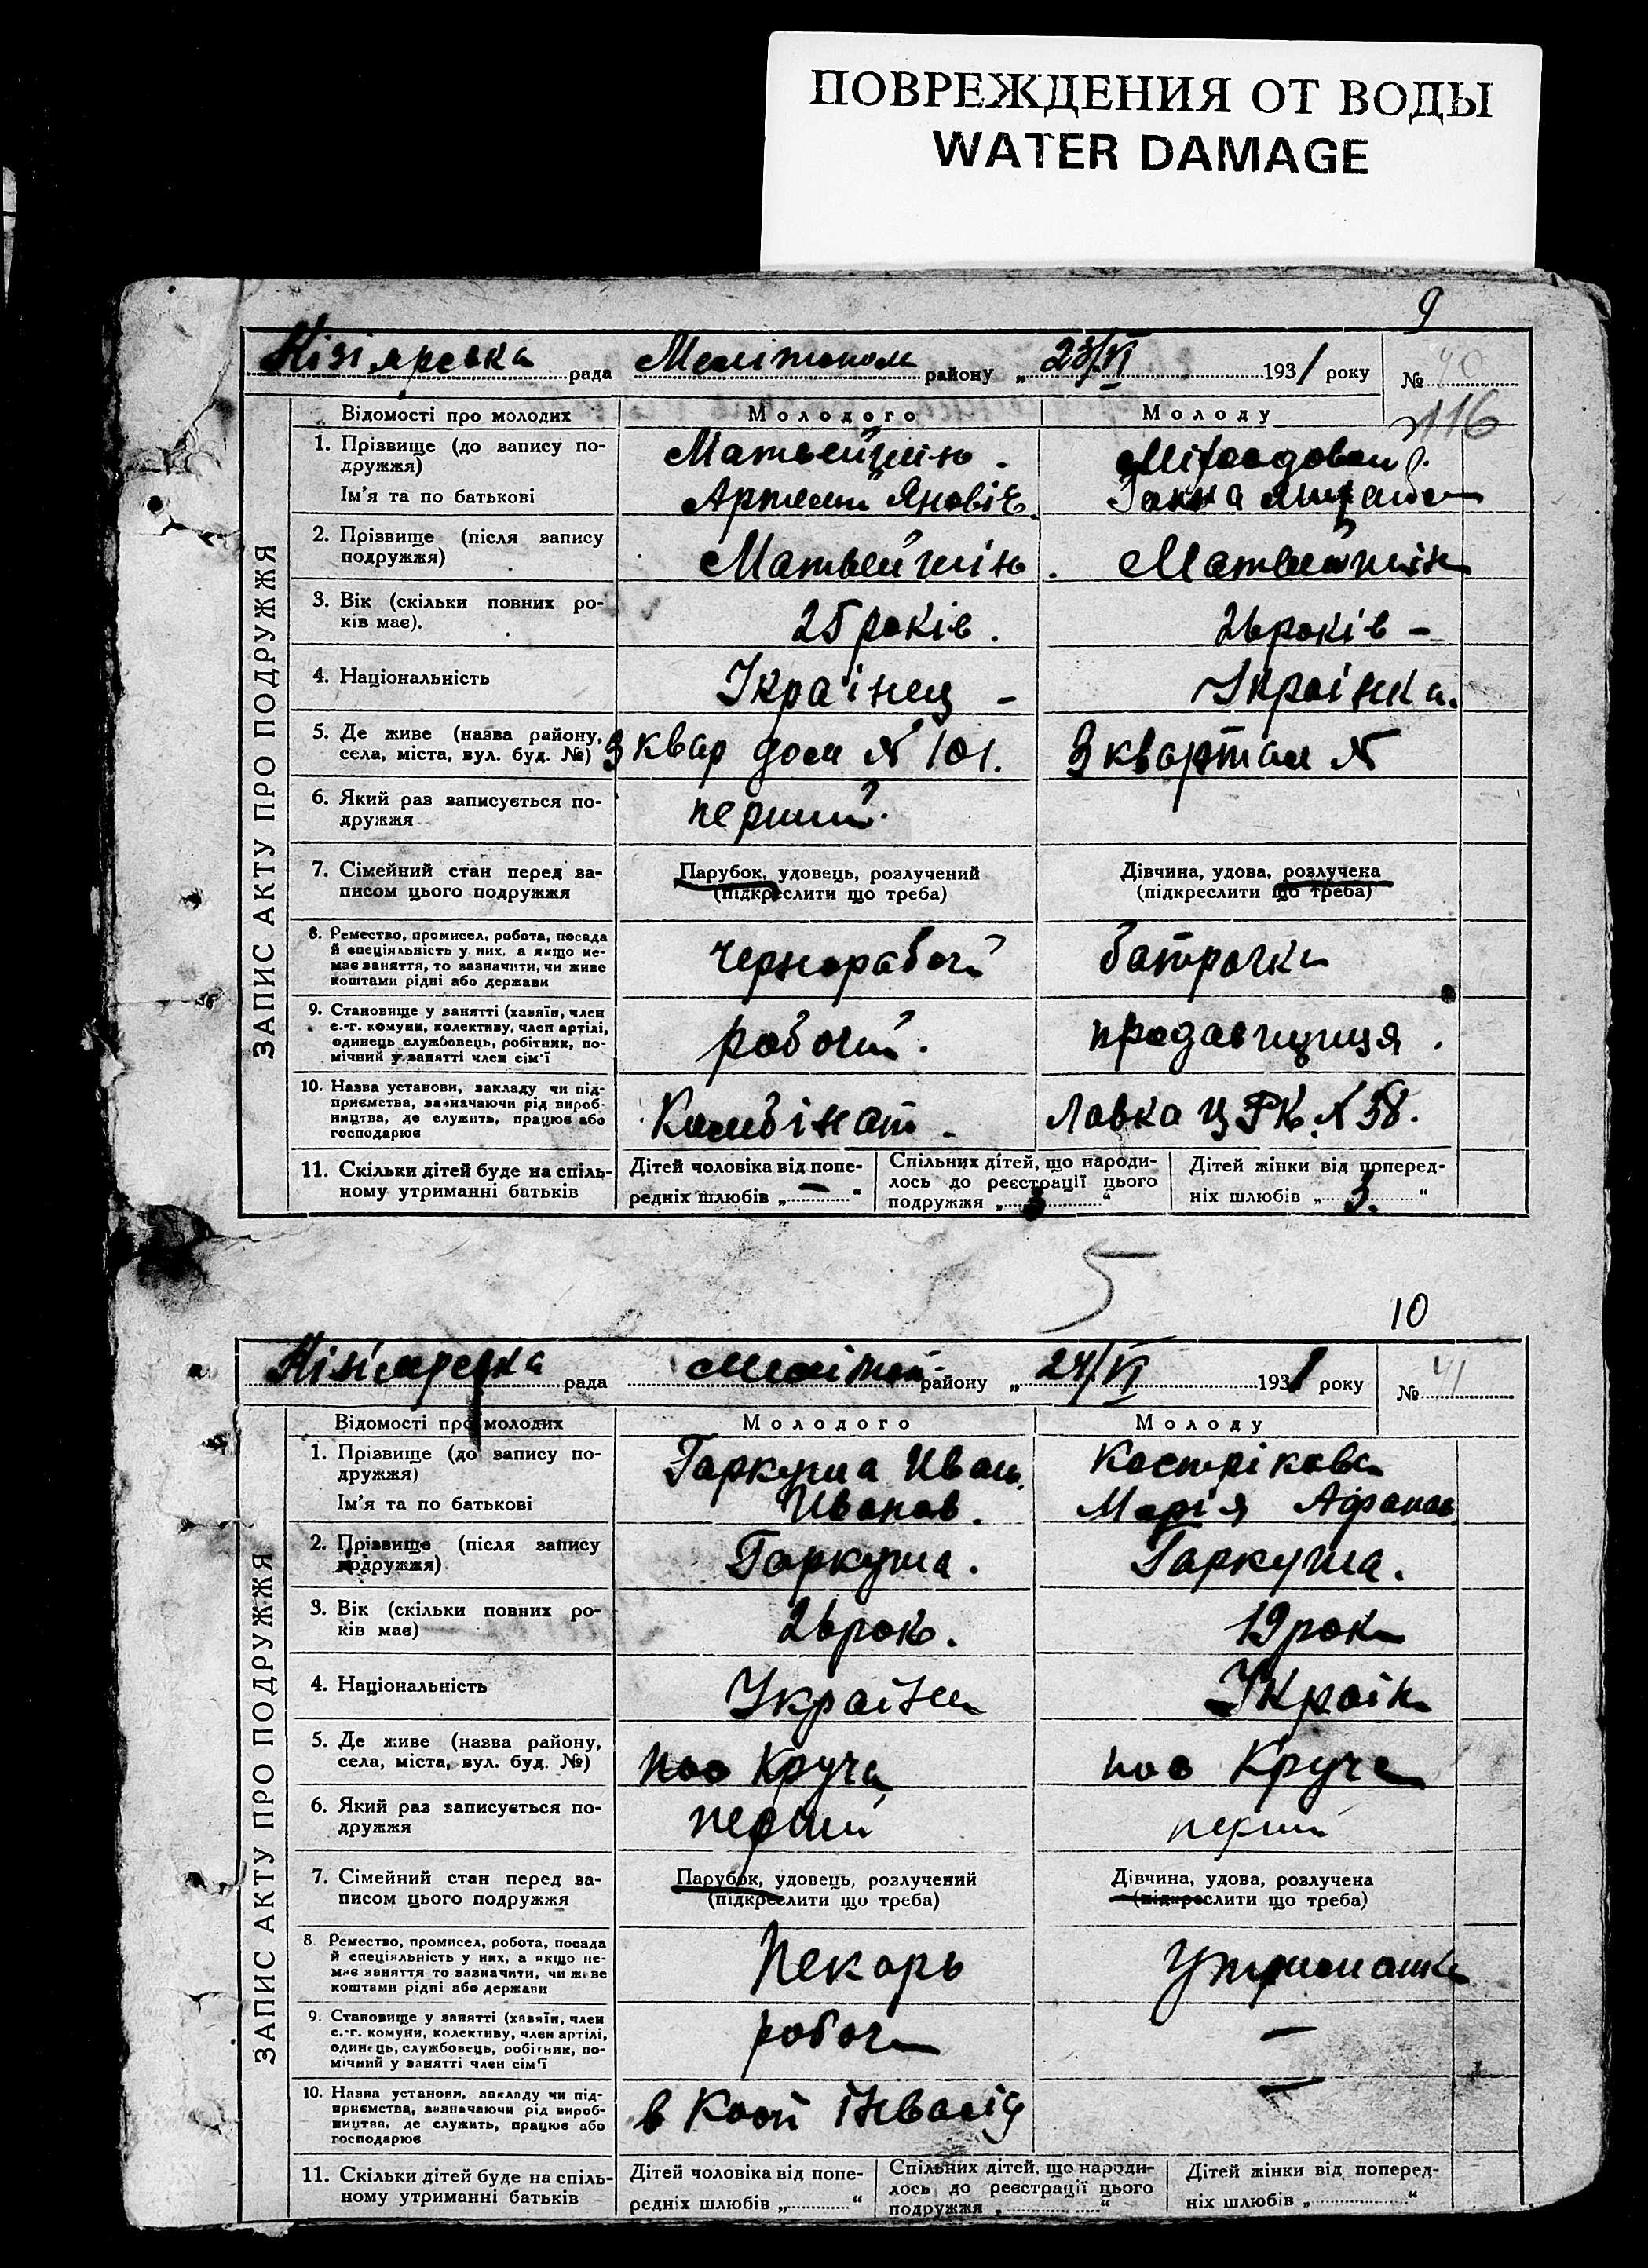 ПОВРЕЖДЕНИЯ ОТ ВОДЫ
WATER DAMAGE
9
Кізіярська рада Мелітополь району „ 23/VI 1931 року № 40
116
ЗАПИС АКТУ ПРО ПОДРУЖЖЯ
Відомості про молодих Молодого Молоду
1. Прізвище (до запису по-
дружжя) Матвейшін.
Ім'я та по батькові Артем Яновіч.
2. Прізвище (після запису
подружжя) Матвейшін. Матвейшін
3. Вік (скільки повних ро-
ків має). 25 років. 26 років –
4. Національність Українец – Українка.
5. Де живе (назва району,
села, міста, вул. буд. №) 3 квар дом № 101. 3 квартал №
6. Який раз записується по-
дружжя перший.
7. Сімейний стан перед за-
писом цього подружжя
Парубок, удовець, розлучений
(підкреслити що треба)
Дівчина, удова, розлучена
(підкреслити що треба)
8. Ремество, промисел, робота, посада
й спеціяльність у них, а якщо не-
має заняття, то зазначити, чи живе
коштами рідні або держави
чернорабочй батрачка
9. Становище у занятті (хазяїн, член
с.-г. комуни, колективу, член артілі,
одинець службовець, робітник, по-
мічний у занятті член сім'ї
робочий. продавщиця.
10. Назва установи, закладу чи під-
приємства, зазначаючи рід вироб-
ництва, де служить, працює або
господарює
Комбінат – Лавка ЦРК. № 58.
11. Скільки дітей буде на спіль-
ному утриманні батьків
Дітей чоловіка від попе-
редніх шлюбів „ — “
Спільних дітей, що народи-
лось до реєстрації цього
подружжя „ 3 “
Дітей жінки від поперед-
ніх шлюбів „ 3. “
5
10
Кізіярська рада Меліто́п району „ 24/VI 1931 року № 41
ЗАПИС АКТУ ПРО ПОДРУЖЖЯ
Відомості про молодих Молодого Молоду
1. Прізвище (до запису по-
дружжя) Гаркуша Иван Кострікова
Ім'я та по батькові Иванов. Марія Афанас.
2. Прізвище (після запису
подружжя) Гаркуша. Гаркуша.
3. Вік (скільки повних ро-
ків має) 26 рок. 19 рок
4. Національність Україн Україн
5. Де живе (назва району,
села, міста, вул. буд. №) пос Круча пос Круча
6. Який раз записується по-
дружжя перший перший
7. Сімейний стан перед за-
писом цього подружжя
Парубок, удовець, розлучений
(підкреслити що треба)
Дівчина, удова, розлучена
(підкреслити що треба)
8. Ремество, промисел, робота, посада
й спеціяльність у них, а якщо не-
має заняття то зазначити, чи живе
коштами рідні або держави
Пекарь Утриманка
9. Становище у занятті (хазяїн, член
с.-г. комуни, колективу, член артілі,
одинець, службовець, робітник, по-
мічний у занятті член сім'ї
робоч —
10. Назва установи, закладу чи під-
приємства, визначаючи рід вироб-
ництва, де служить, працює або
господарює
в Кооп інвалід —
11. Скільки дітей буде на спіль-
ному утриманні батьків
Дітей чоловіка від попе-
редніх шлюбів „ “
Спільних дітей, що народи-
лось до реєстрації цього
подружжя „ “
Дітей жінки від поперед-
ніх шлюбів „ “